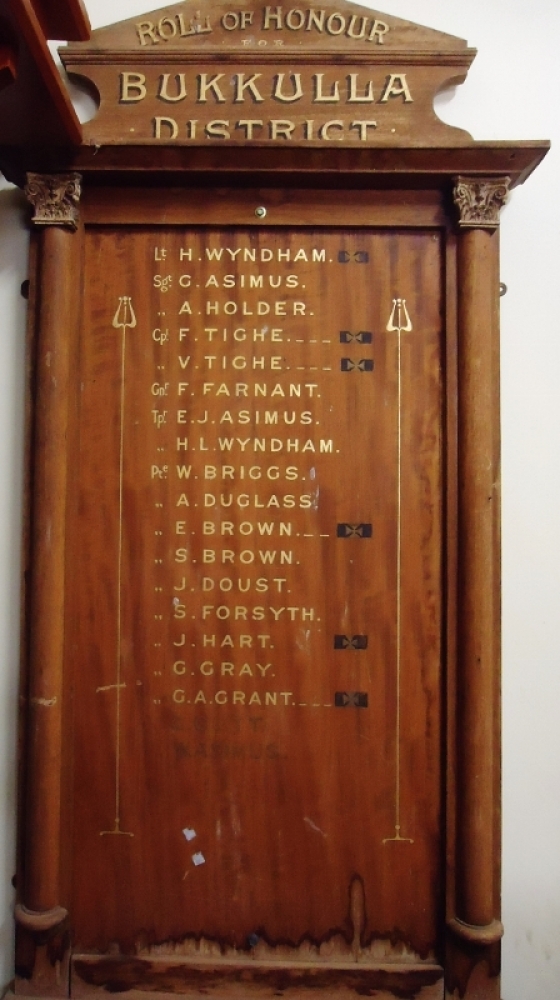 ROLL OF HONOUR
FOR
BUKKULLA
DISTRICT.
Lt H. WYNDHAM.
Sgt G. ASIMUS.
„ A. HOLDER.
Cpl F. TIGHE.____
„ V. TIGHE.____
Gnr F. FARNANT.
Tpr E. J. ASIMUS.
„ H. L. WYNDHAM.
Pte W. BRIGGS.
„ A. DUGLASS
„ E. BROWN.__
„ S. BROWN.
„ J. DOUST.
„ S. FORSYTH.
„ J. HART.
„ G. GRAY.
„ G. A. GRANT.___